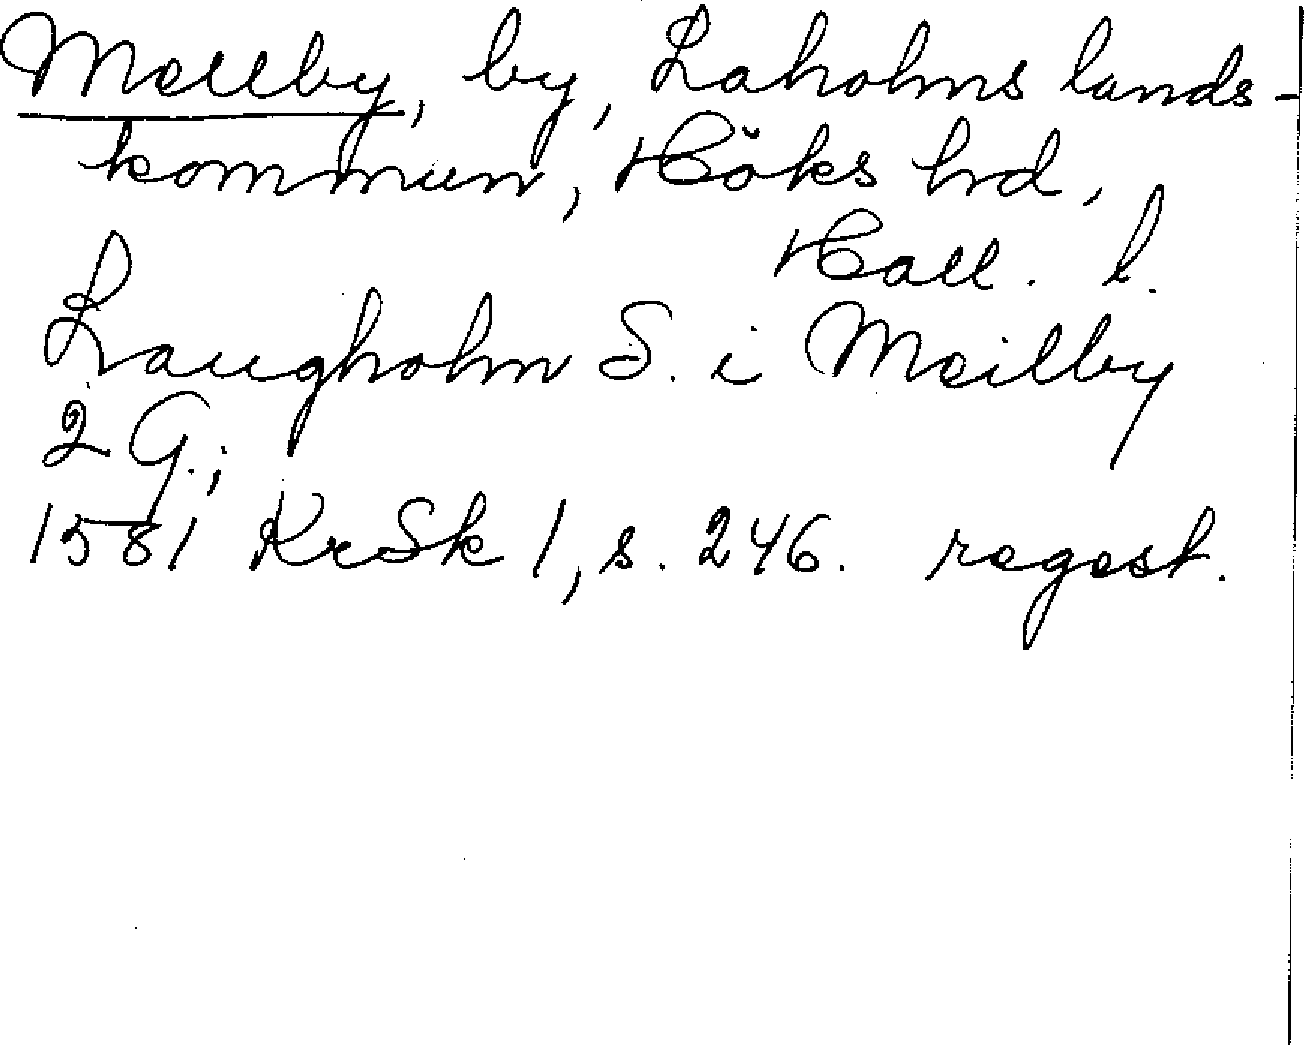 Mellby, by, Laholms lands-
kommun, Höks hrd,
Hall. l.
Laugholm S. i Meilby
2 G.;
1581 KrSk 1, s. 246. regest.